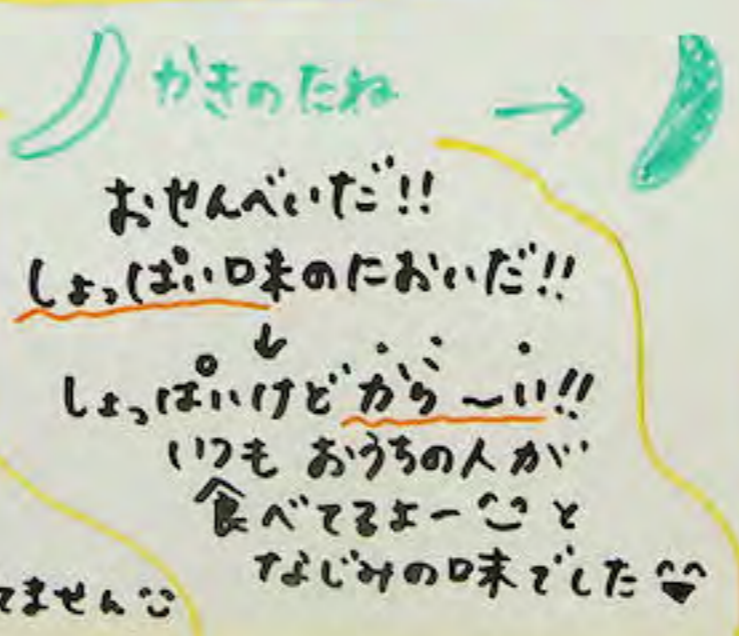 かきのたね →
おせんべいだ!!
しょっぱい味のにおいだ!!
↓
しょっぱいけどから〜い!!
いつもおうちの人が
食べてるよーと
なじみの味でした
てません